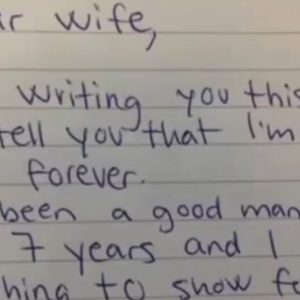 ır wife,
writing you this
tell you that I'm
forever.
been a good man
7 years and I
hing to show fo